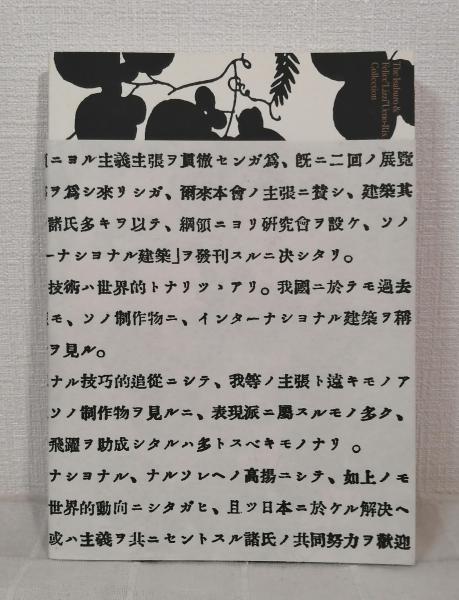 The Isaburo &
Felice "Lizzi" Ueno-Rix
Collection
ニヨル主義主張ヲ貫徹センガ爲、旣ニ二回ノ展覽
ヲ爲シ來リシガ、爾來本會ノ主張ニ賛シ、建築其
諸氏多キヲ以テ、綱領ニヨリ硏究會ヲ設ケ、ソノ
ーナショナル建築」ヲ發刊スルニ決シタリ。
技術ハ世界的トナリツヽアリ。我國ニ於テモ過去
モ、ソノ制作物ニ、インターナショナル建築ヲ稱
ヲ見ル。
ナル技巧的追從ニシテ、我等ノ主張ト遠キモノア
ソノ制作物ヲ見ルニ、表現派ニ屬スルモノ多ク、
飛躍ヲ助成シタルハ多トスベキモノナリ 。
ナショナル、ナルソレヘノ高揚ニシテ、如上ノモ
世界的動向ニシタガヒ、且ツ日本ニ於ケル解決ヘ
或ハ主義ヲ共ニセントスル諸氏ノ共同努力ヲ歡迎